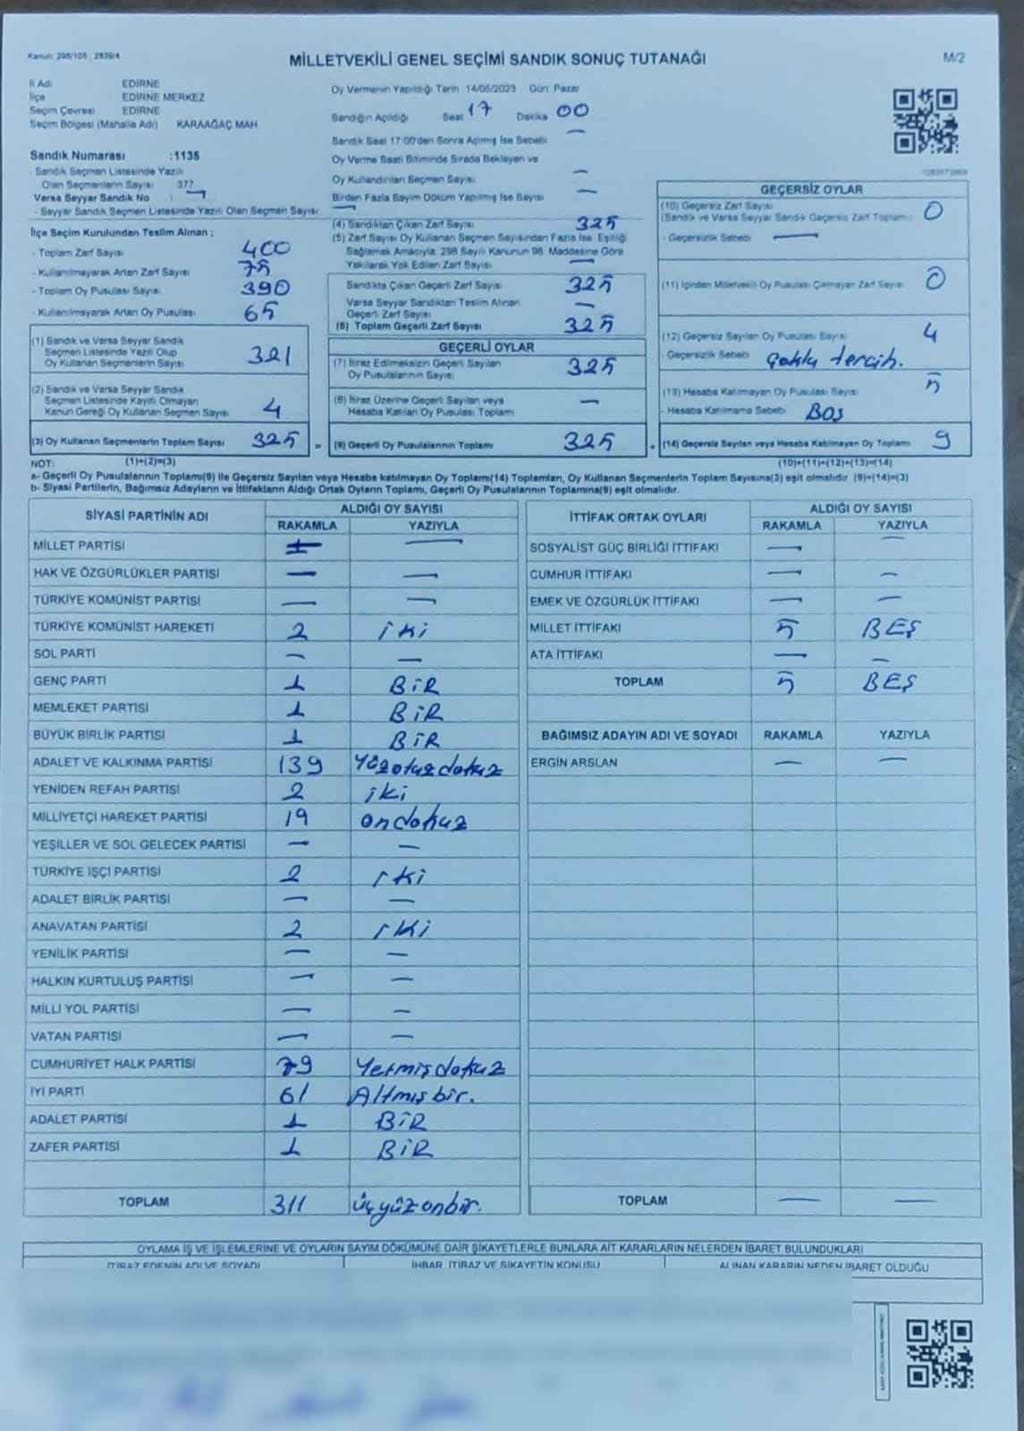 Kanun: 298/105 2839/4
MİLLETVEKİLİ GENEL SEÇİMİ SANDIK SONUÇ TUTANAĞI
M/2
İl Adı EDİRNE
İlçe EDİRNE MERKEZ
Seçim Çevresi EDİRNE
Seçim Bölgesi (Mahalle Adı) KARAAĞAÇ MAH.
Sandık Numarası :1135
- Sandık Seçmen Listesinde Yazılı
Olan Seçmenlerin Sayısı 377
Varsa Seyyar Sandık No : -
- Seyyar Sandık Seçmen Listesinde Yazılı Olan Seçmen Sayısı —
İlçe Seçim Kurulundan Teslim Alınan ;
- Toplam Zarf Sayısı 400
- Kullanılmayarak Artan Zarf Sayısı 75
- Toplam Oy Pusulası Sayısı 390
- Kullanılmayarak Artan Oy Pusulası 65
(1) Sandık ve Varsa Seyyar Sandık
Seçmen Listesinde Yazılı Olup
Oy Kullanan Seçmenlerin Sayısı 321
(2) Sandık ve Varsa Seyyar Sandık
Seçmen Listesinde Kayıtlı Olmayan
Kanun Gereği Oy Kullanan Seçmen Sayısı 4
(3) Oy Kullanan Seçmenlerin Toplam Sayısı 325
Oy Vermenin Yapıldığı Tarih 14/05/2023 Gün: Pazar
Sandığın Açıldığı Saat 17 Dakika 00
Sandık Saat 17:00'den Sonra Açılmış İse Sebebi —
Oy Verme Saati Bitiminde Sırada Bekleyen ve
Oy Kullandırılan Seçmen Sayısı —
Birden Fazla Sayım Döküm Yapılmış İse Sayısı —
(4) Sandıktan Çıkan Zarf Sayısı 325
(5) Zarf Sayısı Oy Kullanan Seçmen Sayısından Fazla İse, Eşitliği
Sağlamak Amacıyla, 298 Sayılı Kanunun 98. Maddesine Göre
Yakılarak Yok Edilen Zarf Sayısı —
Sandıkta Çıkan Geçerli Zarf Sayısı 325
Varsa Seyyar Sandıktan Teslim Alınan
Geçerli Zarf Sayısı —
(6) Toplam Geçerli Zarf Sayısı 325
GEÇERLİ OYLAR
(7) İtiraz Edilmeksizin Geçerli Sayılan
Oy Pusulalarının Sayısı 325
(8) İtiraz Üzerine Geçerli Sayılan veya
Hesaba Katılan Oy Pusulası Toplamı —
= (9) Geçerli Oy Pusulalarının Toplamı 325
GEÇERSİZ OYLAR
(10) Geçersiz Zarf Sayısı
(Sandık ve Varsa Seyyar Sandık Geçersiz Zarf Toplamı) 0
- Geçersizlik Sebebi —
(11) İçinden Milletvekili Oy Pusulası Çıkmayan Zarf Sayısı 0
(12) Geçersiz Sayılan Oy Pusulası Sayısı 4
- Geçersizlik Sebebi Çoklu tercih.
(13) Hesaba Katılmayan Oy Pusulası Sayısı 5
- Hesaba Katılmama Sebebi Boş
+ (14) Geçersiz Sayılan veya Hesaba Katılmayan Oy Toplamı 9
NOT: (1)+(2)=(3)
(10)+(11)+(12)+(13)=(14)
a- Geçerli Oy Pusulalarının Toplamı(9) ile Geçersiz Sayılan veya Hesaba katılmayan Oy Toplamı(14) Toplamları, Oy Kullanan Seçmenlerin Toplam Sayısına(3) eşit olmalıdır. (9)+(14)=(3)
b- Siyasi Partilerin, Bağımsız Adayların ve İttifakların Aldığı Ortak Oyların Toplamı, Geçerli Oy Pusulalarının Toplamına(9) eşit olmalıdır.
SİYASİ PARTİNİN ADI ALDIĞI OY SAYISI
RAKAMLA YAZIYLA
MİLLET PARTİSİ — —
HAK VE ÖZGÜRLÜKLER PARTİSİ — —
TÜRKİYE KOMÜNİST PARTİSİ — —
TÜRKİYE KOMÜNİST HAREKETİ 2 iki
SOL PARTİ — —
GENÇ PARTİ 1 BİR
MEMLEKET PARTİSİ 1 BİR
BÜYÜK BİRLİK PARTİSİ 1 BİR
ADALET VE KALKINMA PARTİSİ 139 Yüzotuzdokuz
YENİDEN REFAH PARTİSİ 2 iki
MİLLİYETÇİ HAREKET PARTİSİ 19 ondokuz
YEŞİLLER VE SOL GELECEK PARTİSİ — —
TÜRKİYE İŞÇİ PARTİSİ 2 iki
ADALET BİRLİK PARTİSİ — —
ANAVATAN PARTİSİ 2 iki
YENİLİK PARTİSİ — —
HALKIN KURTULUŞ PARTİSİ — —
MİLLİ YOL PARTİSİ — —
VATAN PARTİSİ — —
CUMHURİYET HALK PARTİSİ 79 Yetmişdokuz
İYİ PARTİ 61 Altmışbir.
ADALET PARTİSİ 1 BİR
ZAFER PARTİSİ 1 BİR
TOPLAM 311 üçyüzonbir.
İTTİFAK ORTAK OYLARI ALDIĞI OY SAYISI
RAKAMLA YAZIYLA
SOSYALİST GÜÇ BİRLİĞİ İTTİFAKI — —
CUMHUR İTTİFAKI — —
EMEK VE ÖZGÜRLÜK İTTİFAKI — —
MİLLET İTTİFAKI 5 BEŞ
ATA İTTİFAKI — —
TOPLAM 5 BEŞ
BAĞIMSIZ ADAYIN ADI VE SOYADI RAKAMLA YAZIYLA
ERGİN ARSLAN — —
TOPLAM — —
OYLAMA İŞ VE İŞLEMLERİNE VE OYLARIN SAYIM DÖKÜMÜNE DAİR ŞİKAYETLERLE BUNLARA AİT KARARLARIN NELERDEN İBARET BULUNDUKLARI
İTİRAZ EDENİN ADI VE SOYADI İHBAR, İTİRAZ VE ŞİKAYETİN KONUSU ALINAN KARARIN NEDEN İBARET OLDUĞU